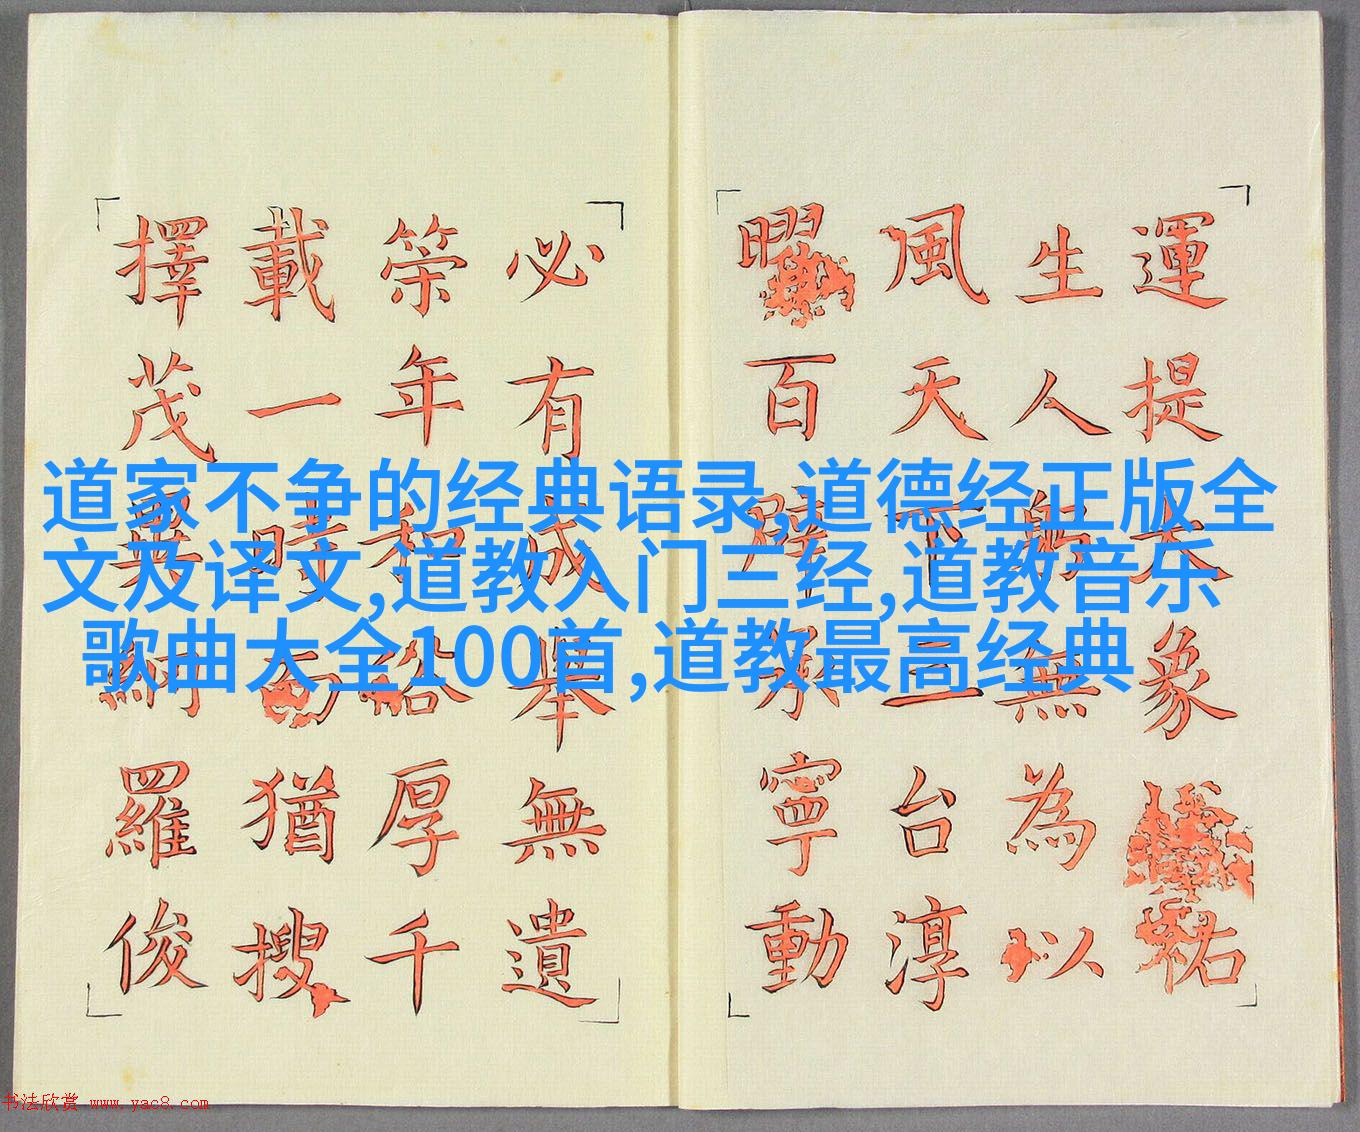 道家不争的经典语录,道德经正版全
文及译文,道教入门三经,道教音乐
歌曲大全100首,道教最高经典
運提大象祐
生人無為以
風天下三台淳
曜百辟承寧動
必有成舉無遺
筞年和俗厚千
載一時而猶搜
擇茂異網羅俊
书法欣赏 www.yac8.com